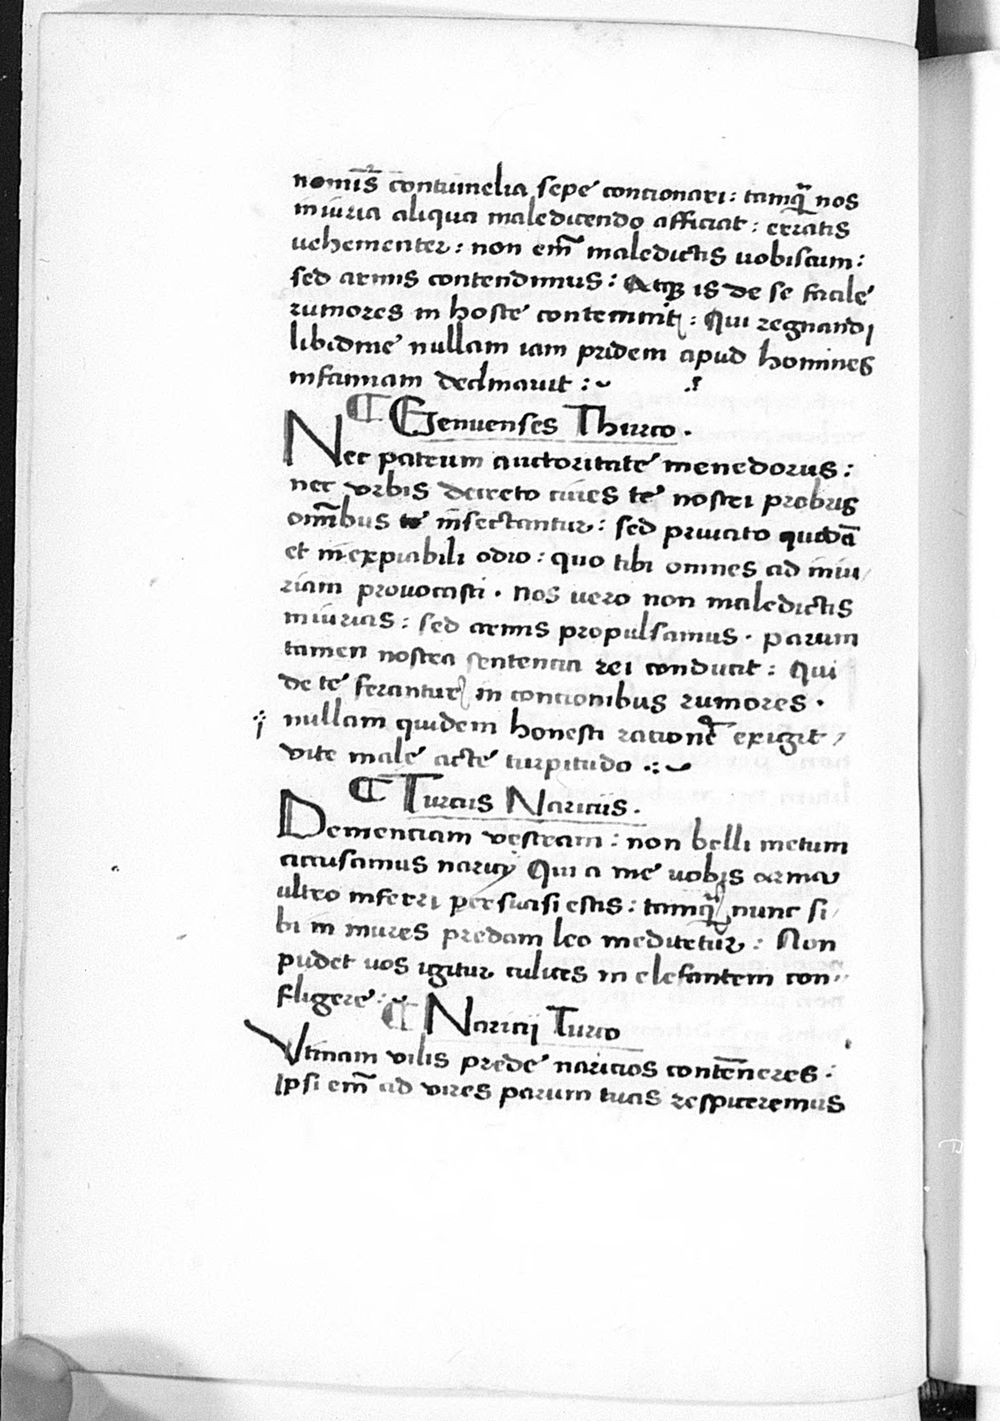 nomīs̄ contumelia sepe concionari : tamq̄ nos
iniuria aliqua maledicendo afficiat : erratis
uehementer : non em̄ maledictis uobiscum :
sed armis contendimus : Atq₃ is de se facile
rumores in hoste contemnit : Qui regnandi
libidine nullam iam pridem apud homines
infamiam declinauit :~
¶ Genuenses Thurco .
Nec patrum auctoritate menedorus :
nec vrbis decreto ciues te nostri probris
om̄ibus te insectantur : sed priuato quodā
et inexpiabili odio : quo tibi omnes ad iniu/
riam prouocasti . nos uero non maledictis
iniurias : sed armis propulsamus . parum
tamen nostra sentencia rei conducit : Qui
de te ferantur in concionibus rumores .
nullam quidem honesti rationē exigit /
vite male acte turpitudo .:~
¶ Turcus Naricijs .
Dementiam vestram : non belli metum
accusamus naricij Qui a me uobis arma
ultro inferri persuasi estis : tamq̄ nunc si/
bi in mures predam leo meditetur : Non
pudet uos igitur culices in elefantem con⸗
fligere :
¶ Naricij Turco
Vtinam vilis prede naricios contēneres :
Ipsi em̄ ad vires parum tuas respiceremus